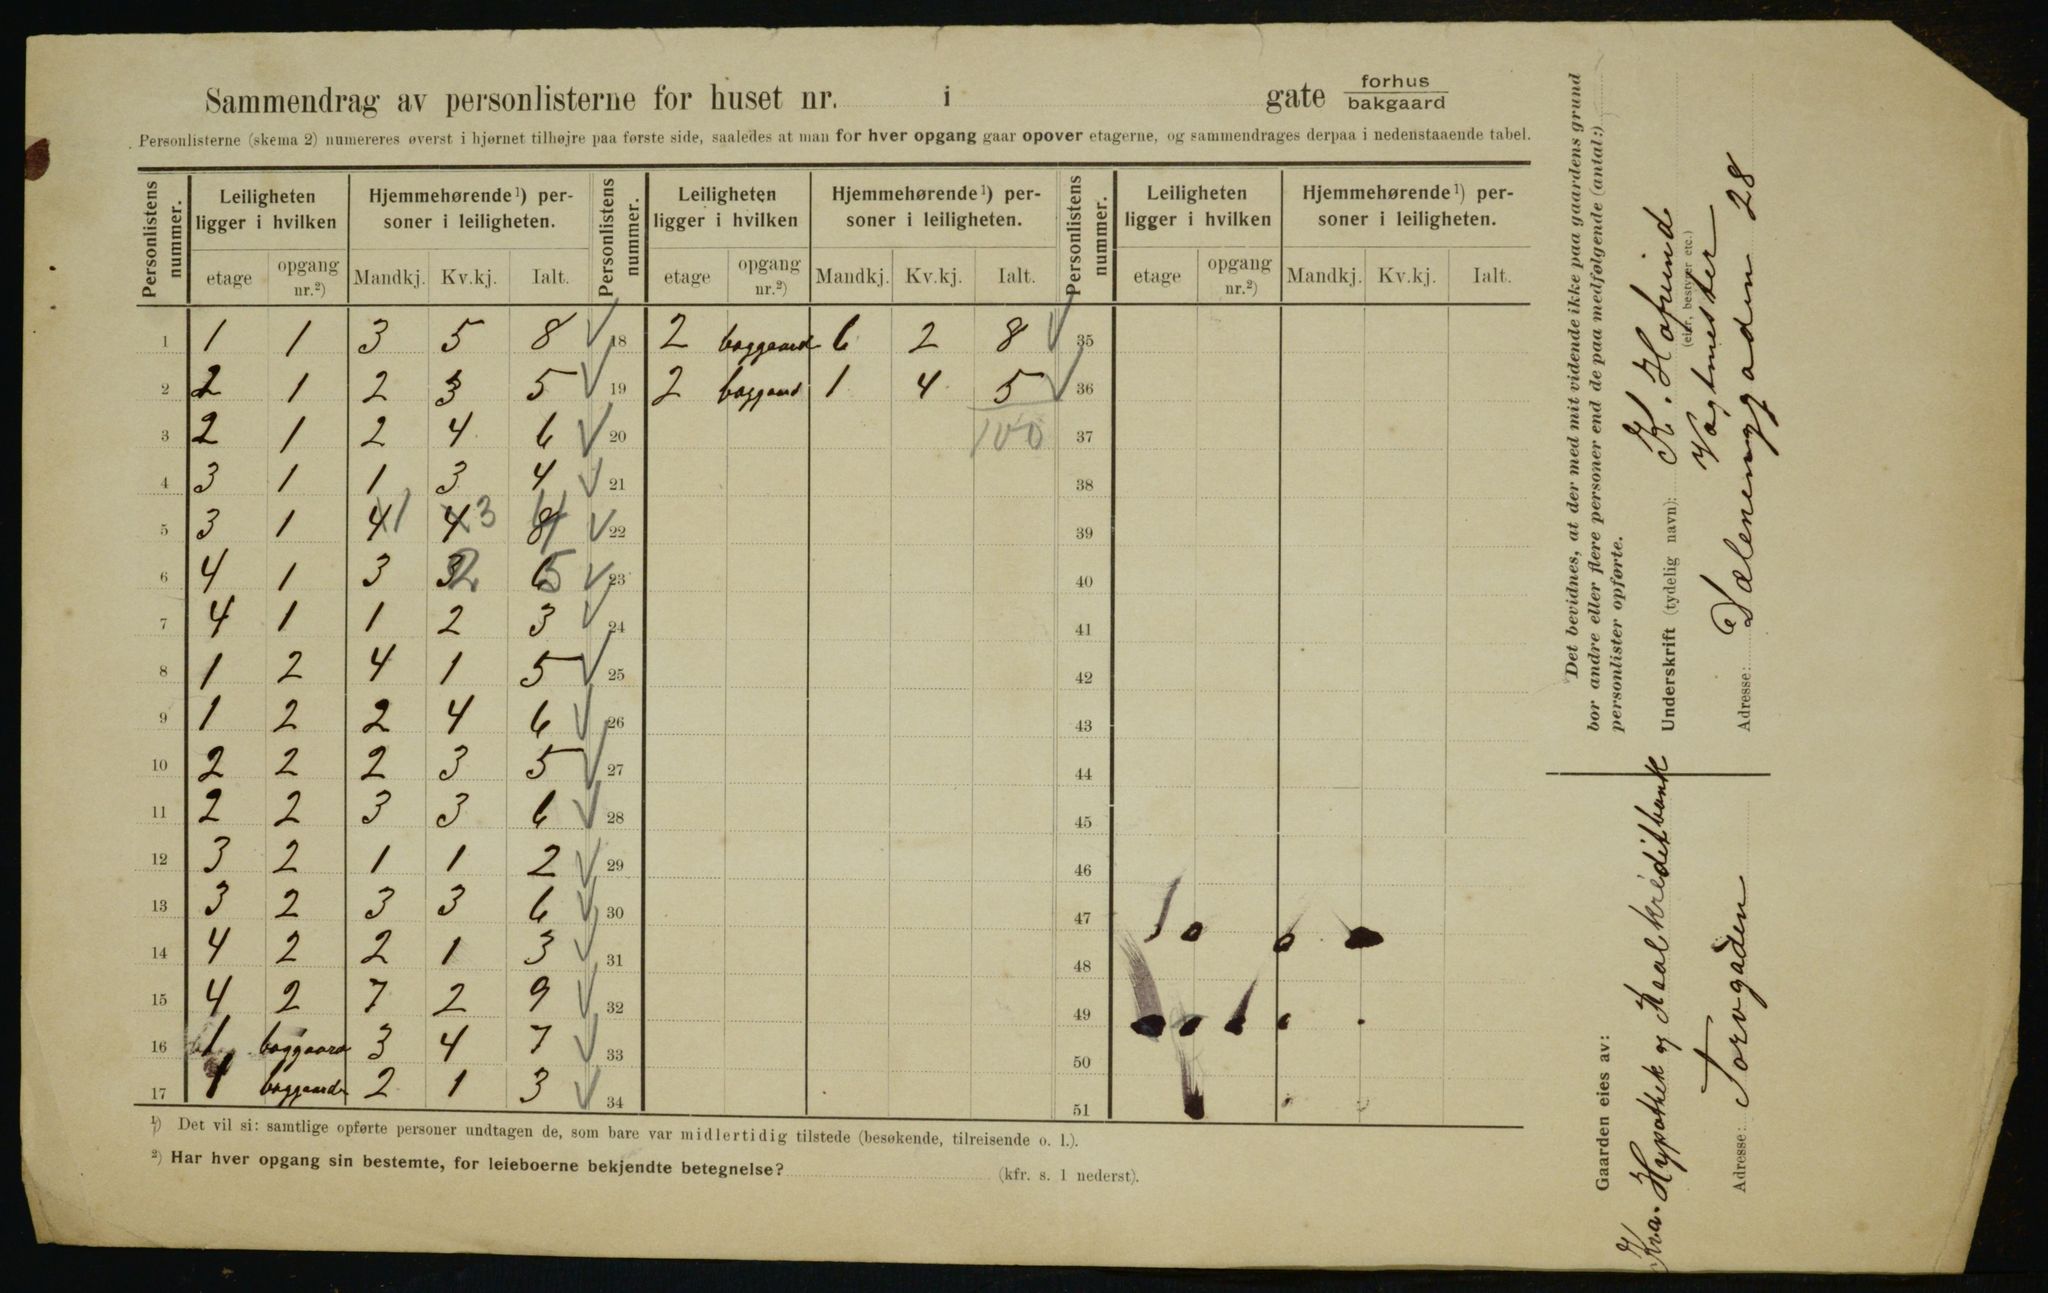 Sammendrag av personlisterne for huset nr. i gate forhus bakgaard
Personlisterne (skema 2) numereres øverst i hjørnet tilhøjre paa første side, saaledes at man for hver opgang gaar opover etagerne, og sammendrages derpaa i nedenstaaende tabel.
Personlistens nummer. Leiligheten ligger i hvilken Hjemmehørende¹) personer i leiligheten. Personlistens nummer. Leiligheten ligger i hvilken Hjemmehørende¹) personer i leiligheten. Personlistens nummer. Leiligheten ligger i hvilken Hjemmehørende¹) personer i leiligheten.
etage opgang nr.²) Mandkj. Kv.kj. Ialt. etage opgang nr.²) Mandkj. Kv.kj. Ialt. etage opgang nr.²) Mandkj. Kv.kj. Ialt.
1 1 1 3 5 8 18 2 baggaard 6 2 8 35
2 2 1 2 3 5 19 2 baggaard 1 4 5 36
3 2 1 2 4 6 20 100 37
4 3 1 1 3 4 21 38
5 3 1 4 1 4 3 8 4 22 39
6 4 1 3 3 2 6 5 23 40
7 4 1 1 2 3 24 41
8 1 2 4 1 5 25 42
9 1 2 2 4 6 26 43
10 2 2 2 3 5 27 44
11 2 2 3 3 6 28 45
12 3 2 1 1 2 29 46
13 3 2 3 3 6 30 47
14 4 2 2 1 3 31 48
15 4 2 7 2 9 32 49
16 1 baggaard 3 4 7 33 50
17 1 baggaard 2 1 3 34 51
¹) Det vil si: samtlige opførte personer undtagen de, som bare var midlertidig tilstede (besøkende, tilreisende o. l.).
²) Har hver opgang sin bestemte, for leieboerne bekjendte betegnelse? (kfr. s. 1 nederst).
Det bevidnes, at der med mit vidende ikke paa gaardens grund
bor andre eller flere personer end de paa medfølgende (antal:)
personlister opførte.
Underskrift (tydelig navn): K. Hofsind
(eier, bestyrer etc.)
Vagtmester
Adresse: Sælenenggaden 28
Gaarden eies av:
Kra. Hypothek og Realkreditbank
Adresse: Torvgaden